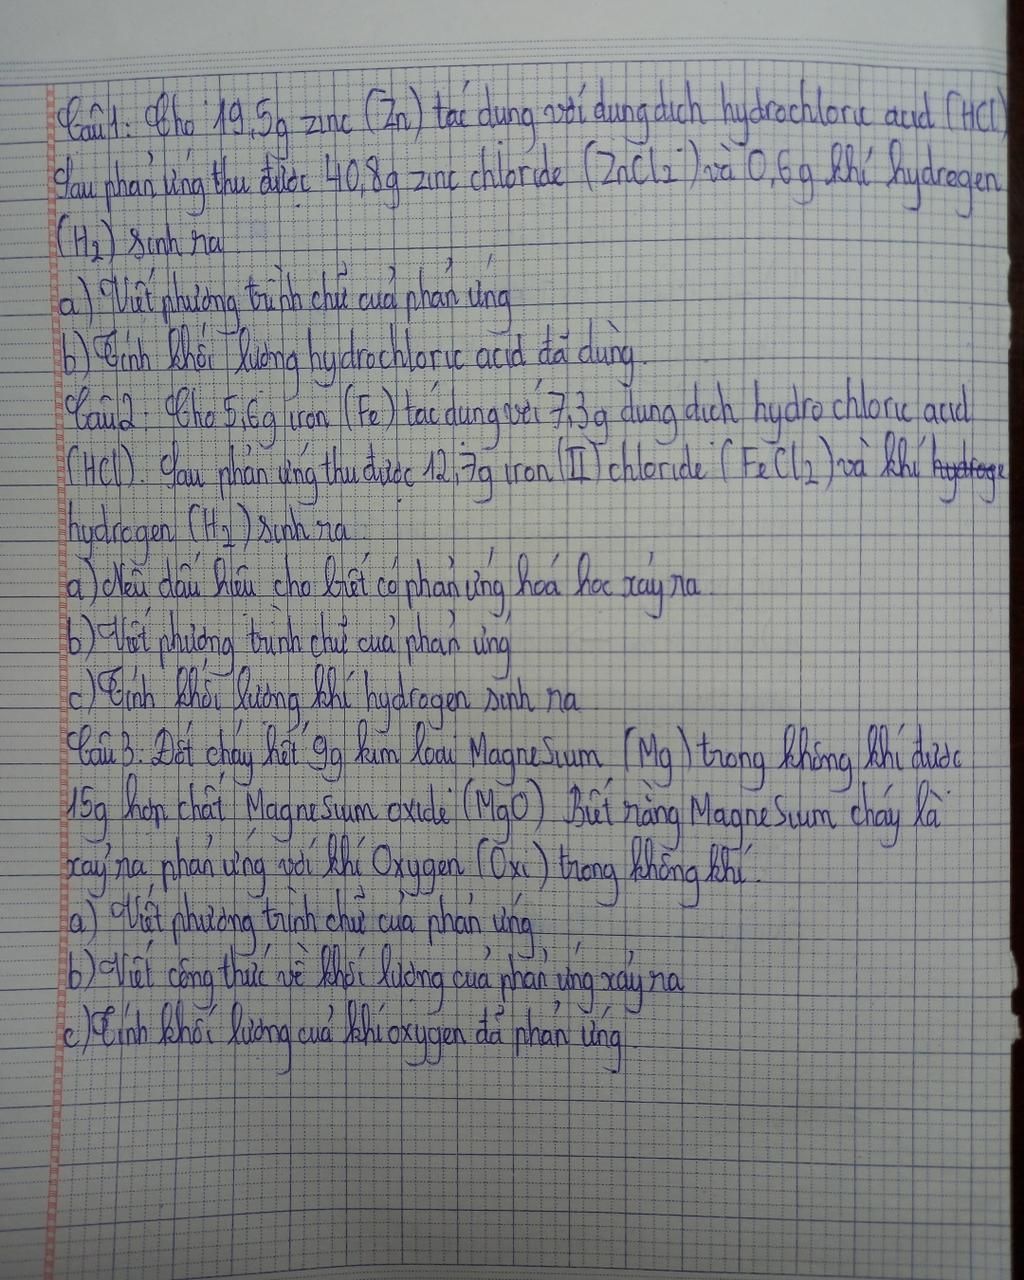 Câu1: Cho 19,5g zinc (Zn) tác dụng với dung dịch hydrochloric acid (HCl)
Sau phản ứng thu được 40,8g zinc chloride (ZnCl2) và 0,6g khí hydrogen
(H2) sinh ra
a) Viết phương trình chữ của phản ứng
b) Tính khối lượng hydrochloric acid đã dùng.
Câu2: Cho 5,6g iron (Fe) tác dụng với 7,3g dung dịch hydrochloric acid
(HCl). Sau phản ứng thu được 12,7g iron (II) chloride (FeCl2) và khí hydroge
hydrogen (H2) sinh ra.
a) Nêu dấu hiệu cho biết có phản ứng hoá học xảy ra.
b) Viết phương trình chữ của phản ứng
c) Tính khối lượng khí hydrogen sinh ra
Câu 3: Đốt cháy hết 9g kim loại Magnesium (Mg) trong không khí được
15g hợp chất Magnesium oxide (MgO) Biết rằng Magnesium cháy là
xảy ra phản ứng với khí Oxygen (Oxi) trong không khí.
a) Viết phương trình chữ của phản ứng
b) Viết công thức về khối lượng của phản ứng xảy ra
c) Tính khối lượng của khí oxygen đã phản ứng